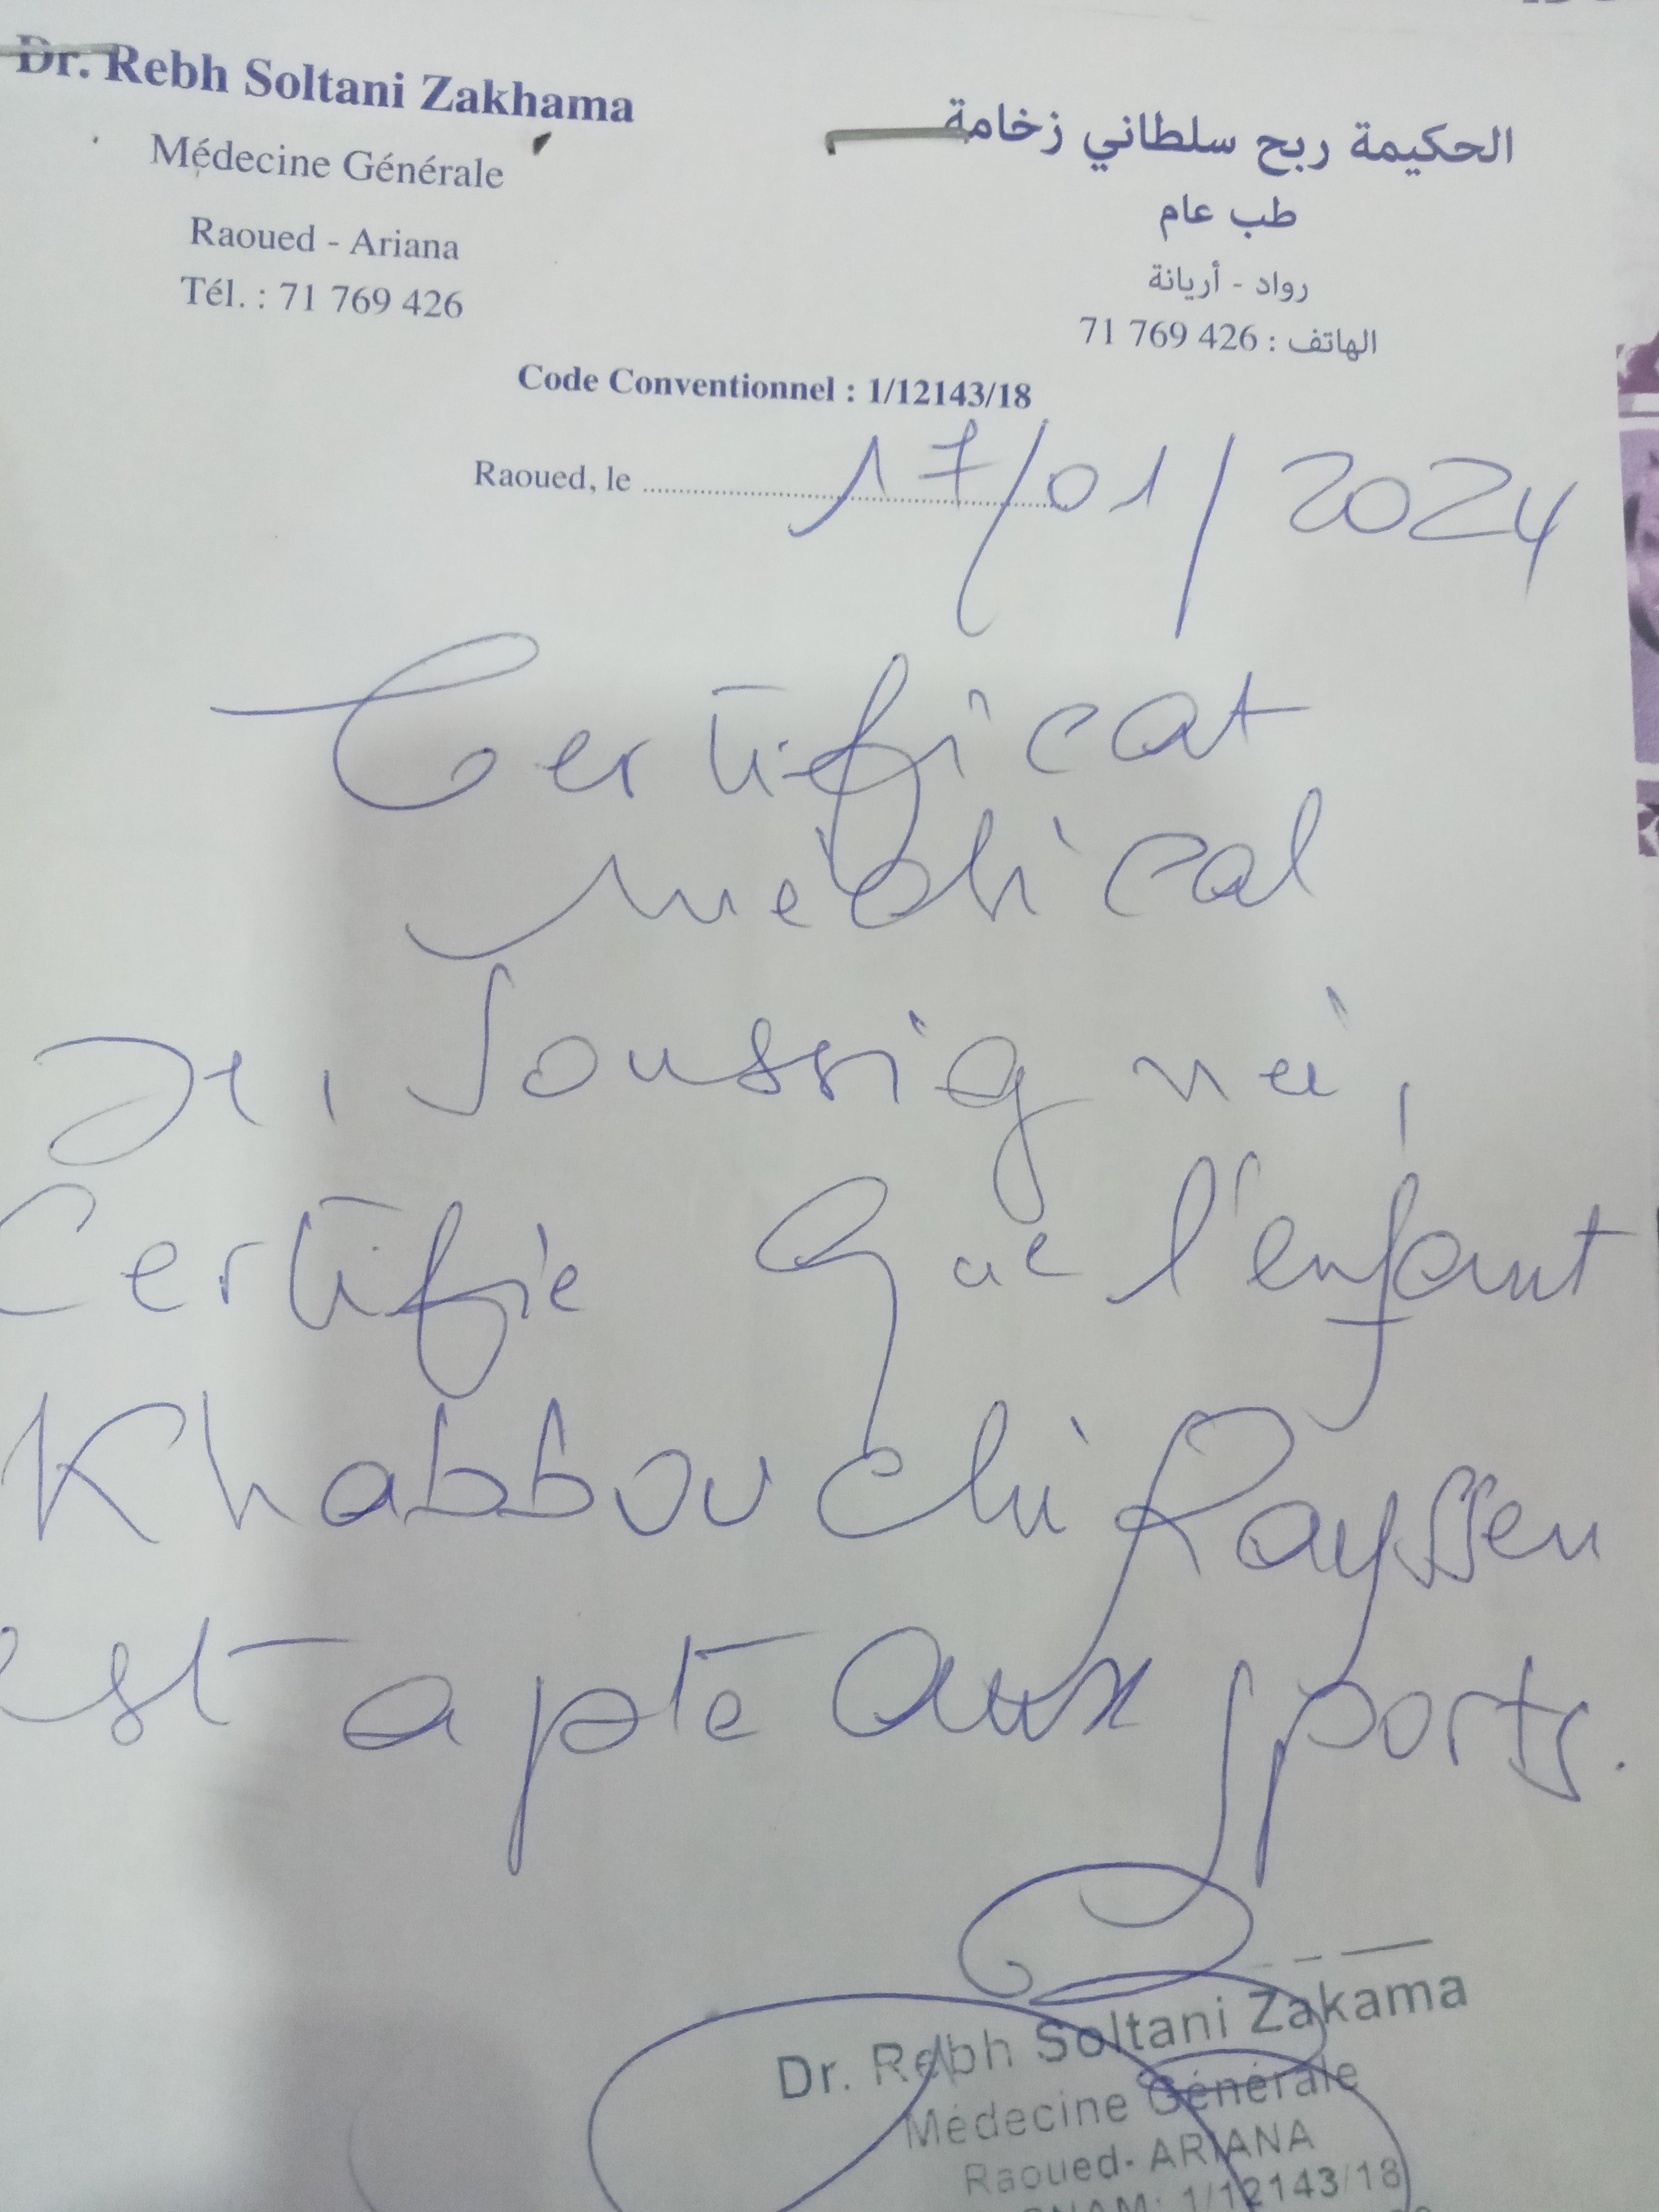 Dr. Rebh Soltani Zakhama
Médecine Générale
Raoued - Ariana
Tél. : 71 769 426
الحكيمة ربح سلطاني زخامة
طب عام
رواد - أريانة
الهاتف : 426 769 71
Code Conventionnel : 1/12143/18
Raoued, le 17/01/2024
Certificat
médical
Je, Soussigné,
Certifie que l'enfant
Khabbouchi Rayssen
est apte aux sports.
Dr. Rebh Soltani Zakama
Médecine Générale
Raoued- ARIANA
CNAM: 1/12143/18